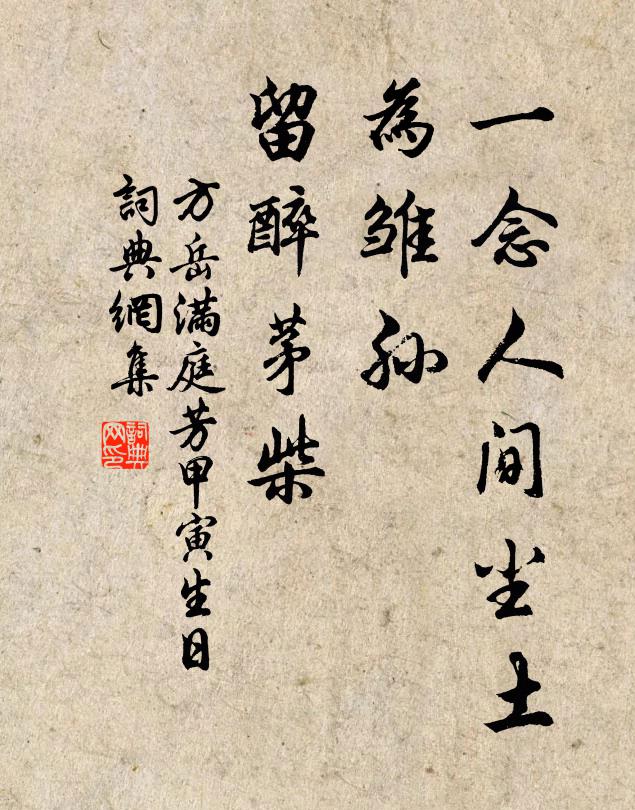 一念人間尘土
為雏孙
留醉茅柴
方岳滿庭芳甲寅生日
詞典網集
詞典
网印